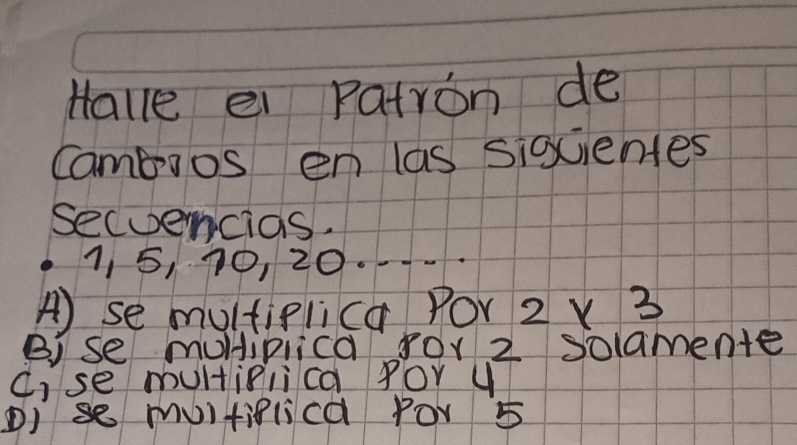 Halle el Patrón de
Cambios en las siguientes
secuencias.
• 1, 5, 10, 20......
A) se multiplica Por 2 y 3
B) se multiplica Por 2 solamente
C) se multiplica Por 4
D) se multiplica Por 5